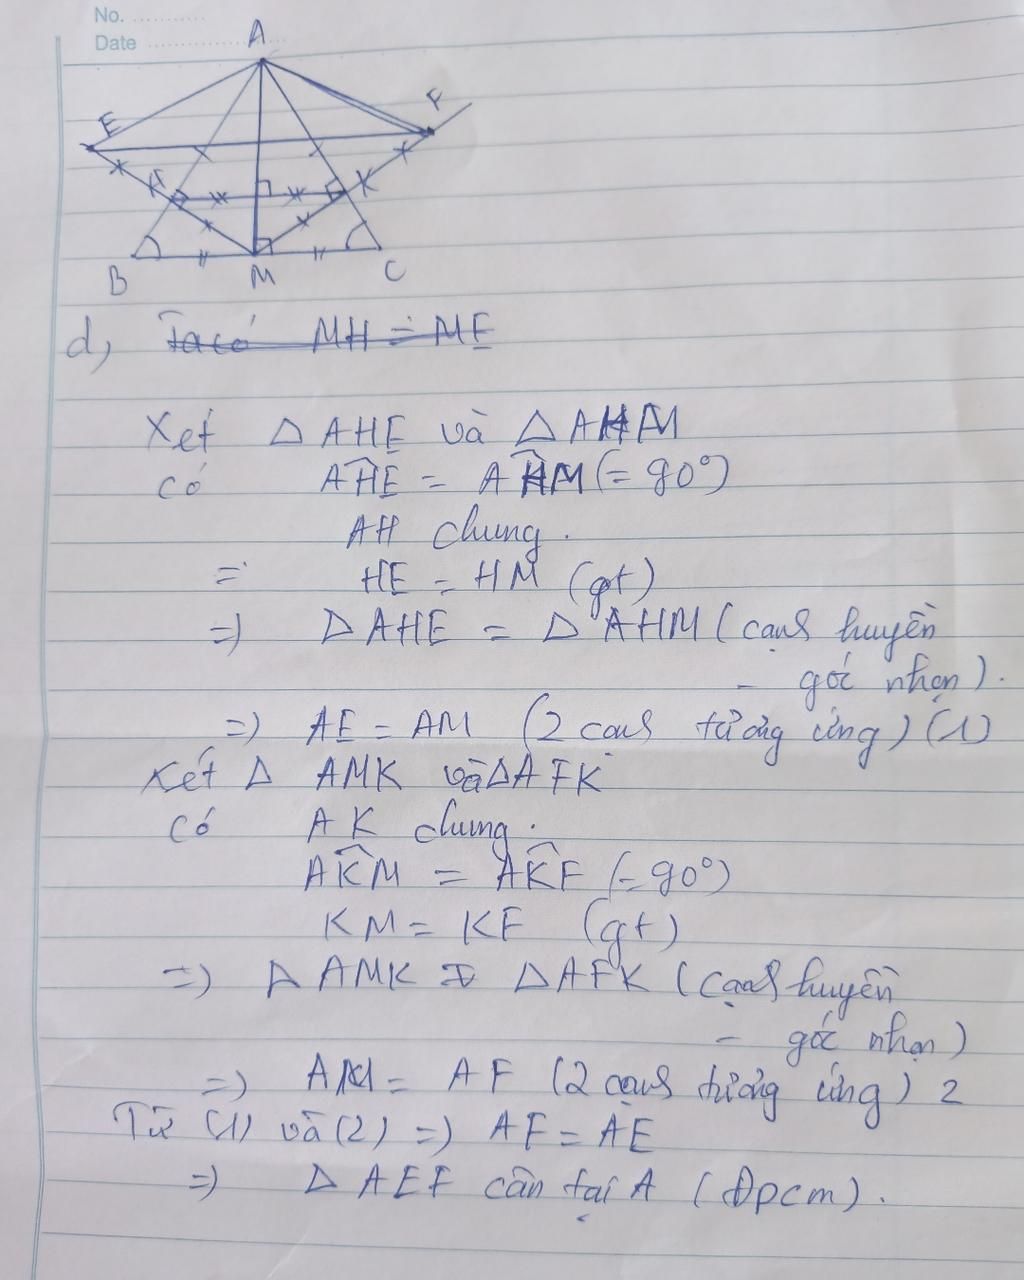 No. ..........
Date ....................
A
E
F
H
K
B
M
C
d) Ta có MH = ME
Xét Δ AHE và Δ AHM
có AHE = AHM (= 90°)
AH chung.
=> HE = HM (gt)
=) Δ AHE = Δ AHM (cạnh huyền
- góc nhọn).
=) AE = AM (2 cạnh tương ứng) (1)
Xét Δ AMK và Δ AFK
Có AK chung.
AKM = AKF (= 90°)
KM = KF (gt)
=) Δ AMK = Δ AFK (cạnh huyền
- góc nhọn)
=) AM = AF (2 cạnh tương ứng) 2
Từ (1) và (2) =) AF = AE
=) Δ AEF cân tại A (Đpcm).